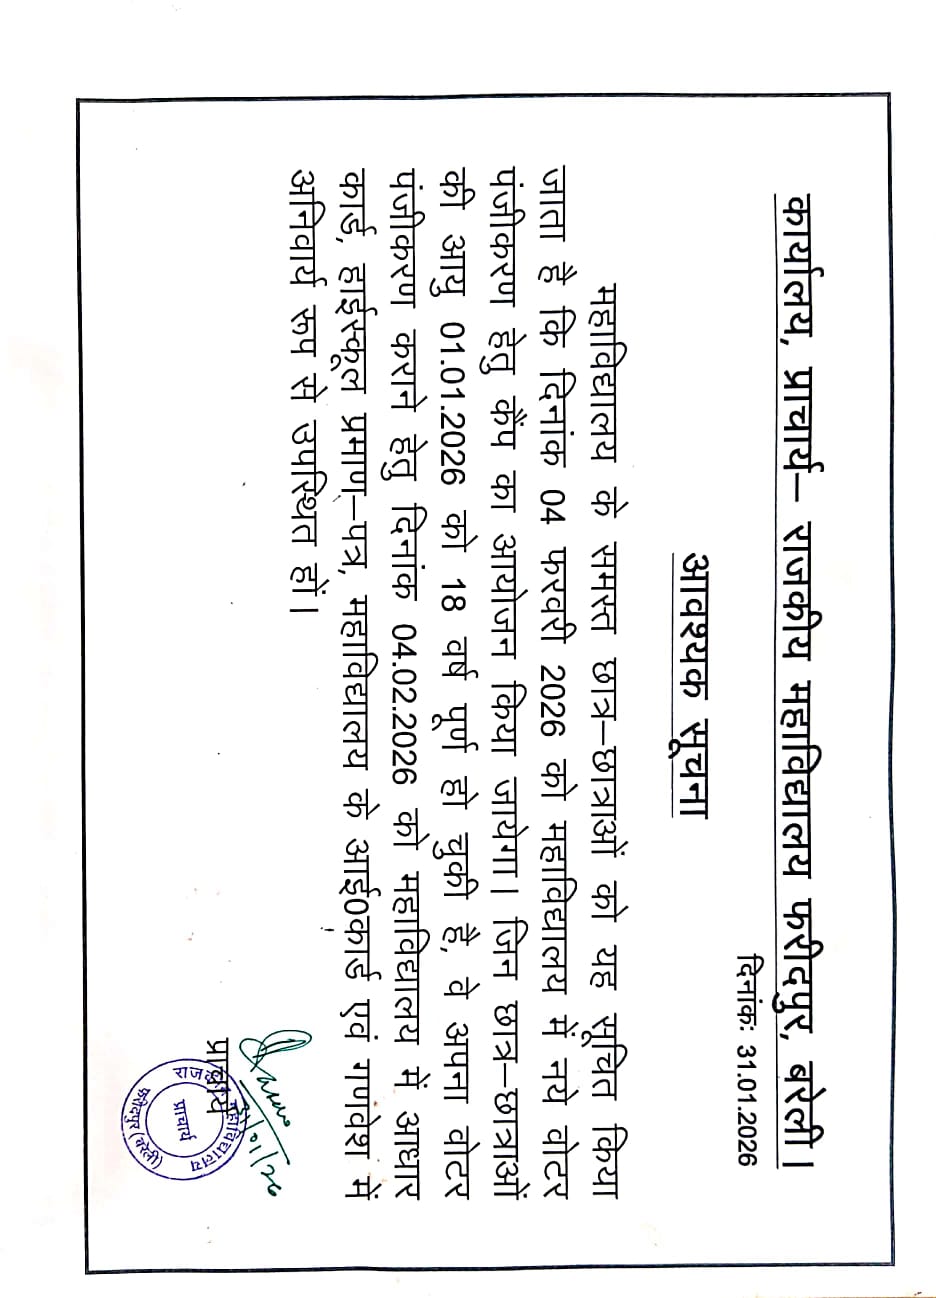 कार्यालय, प्राचार्य– राजकीय महाविद्यालय फरीदपुर, बरेली।
दिनांकः 31.01.2026
आवश्यक सूचना
महाविद्यालय के समस्त छात्र–छात्राओं को यह सूचित किया
जाता है कि दिनांक 04 फरवरी 2026 को महाविद्यालय में नये वोटर
पंजीकरण हेतु कैंप का आयोजन किया जायेगा। जिन छात्र–छात्राओं
की आयु 01.01.2026 को 18 वर्ष पूर्ण हो चुकी है, वे अपना वोटर
पंजीकरण कराने हेतु दिनांक 04.02.2026 को महाविद्यालय में आधार
कार्ड, हाईस्कूल प्रमाण–पत्र, महाविद्यालय के आई0कार्ड एवं गणवेश में
अनिवार्य रूप से उपस्थित हों।
31/01/26
प्राचार्य
महाविद्यालय
प्राचार्य
फरीदपुर (बरेली)